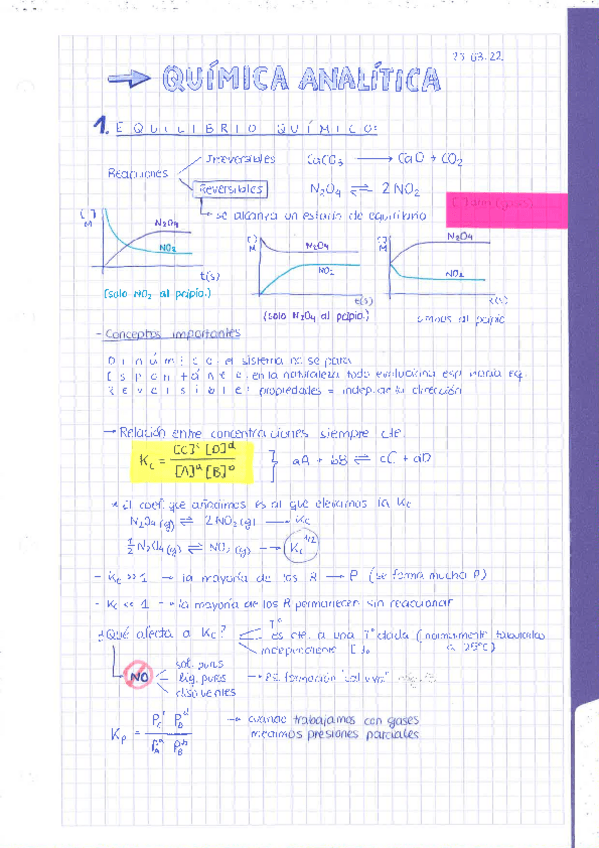 23.03.22
→ QUÍMICA ANALÍTICA
1. EQUILIBRIO QUÍMICO:
Reacciones
Irreversibles CaCO3 → CaO + CO2
Reversibles N2O4 ⇌ 2 NO2
se alcanza un estado de equilibrio
[ ] M N2O4 NO2 t(s)
(solo NO2 al pcipio.)
[ ] M N2O4 NO2 t(s)
(solo N2O4 al pcipio.)
[ ] M N2O4 NO2 t(s)
al pcipio
- Conceptos importantes
Dinámico: el sistema no se para
Espontáneo: en la naturaleza todo evoluciona esp. hacia eq.
Reversible: propiedades = indep. de la dirección
→ Relación entre concentraciones siempre cte
Kc = [C]c [D]d / [A]a [B]b } aA + bB ⇌ cC + dD
* El coef. que añadimos es al que elevamos la Kc
N2O4 (g) ⇌ 2NO2 (g) → Kc
1/2 N2O4 (g) ⇌ NO2 (g) → Kc 1/2
- Kc >> 1 → la mayoría de los R → P (se forma mucho P)
- Kc << 1 → la mayoría de los R permanecen sin reaccionar
¿Qué afecta a Kc?
Tª
es cte. a una Tª dada (normalmente tabuladas a 25ºC)
independiente [ ]o
NO
sol. puros
líq. puros
disolventes
Kp = PCc PDd / PAa PBb
→ cuando trabajamos con gases
medimos presiones parciales